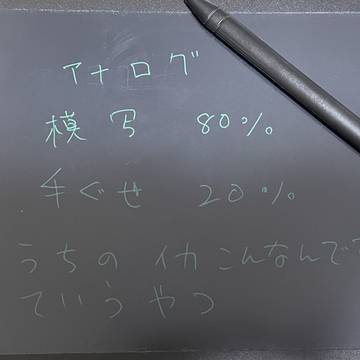 アナログ
模写 80%
手ぐせ 20%
うちの イカ こんなんで
ていうやつ